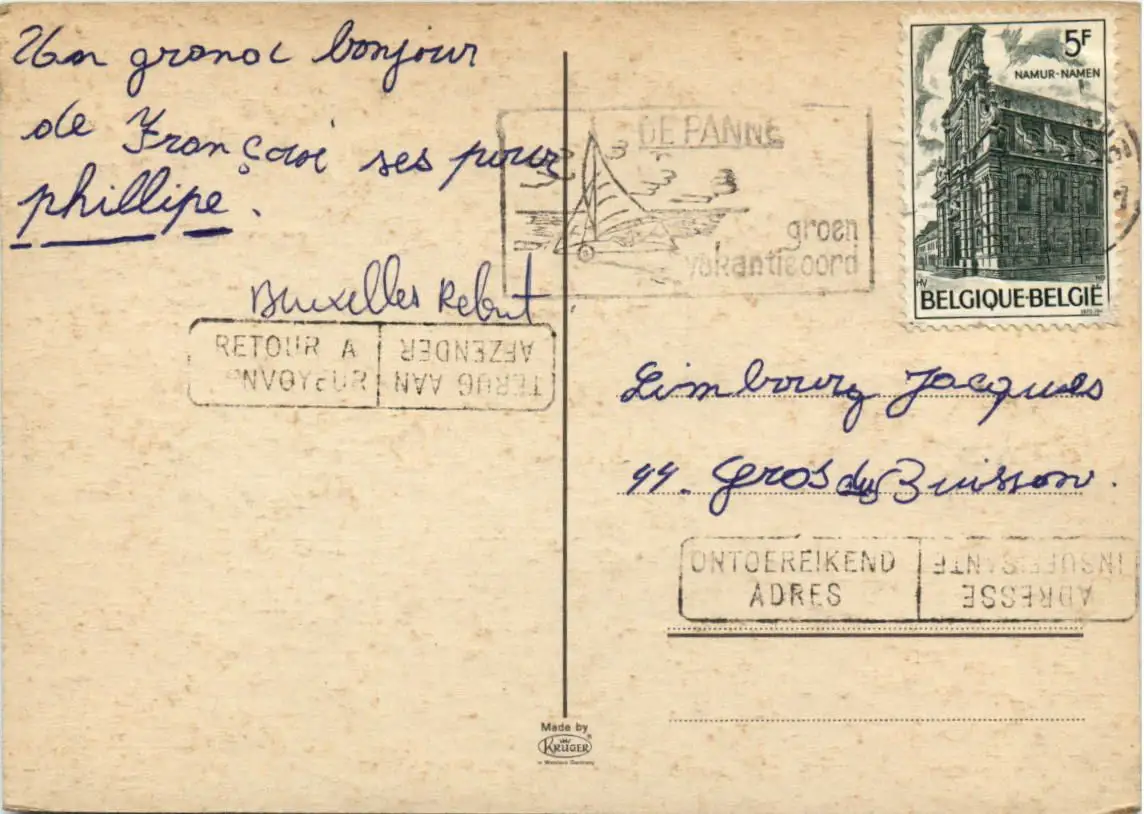 Un grand bonjour
de Françoi ses pour
phillipe.
Bruxelles Rebut
RETOUR A
ENVOYEUR
TERUG AAN
AFZENDER
DE PANNE
groen
vakantieoord
5F
NAMUR-NAMEN
HV
BELGIQUE-BELGIË
Limbourg Jacques
44. Gros du Buisson.
ONTOEREIKEND
ADRES
ADRESSE
INSUFFISANTE
Made by
KRÜGER
in Western Germany